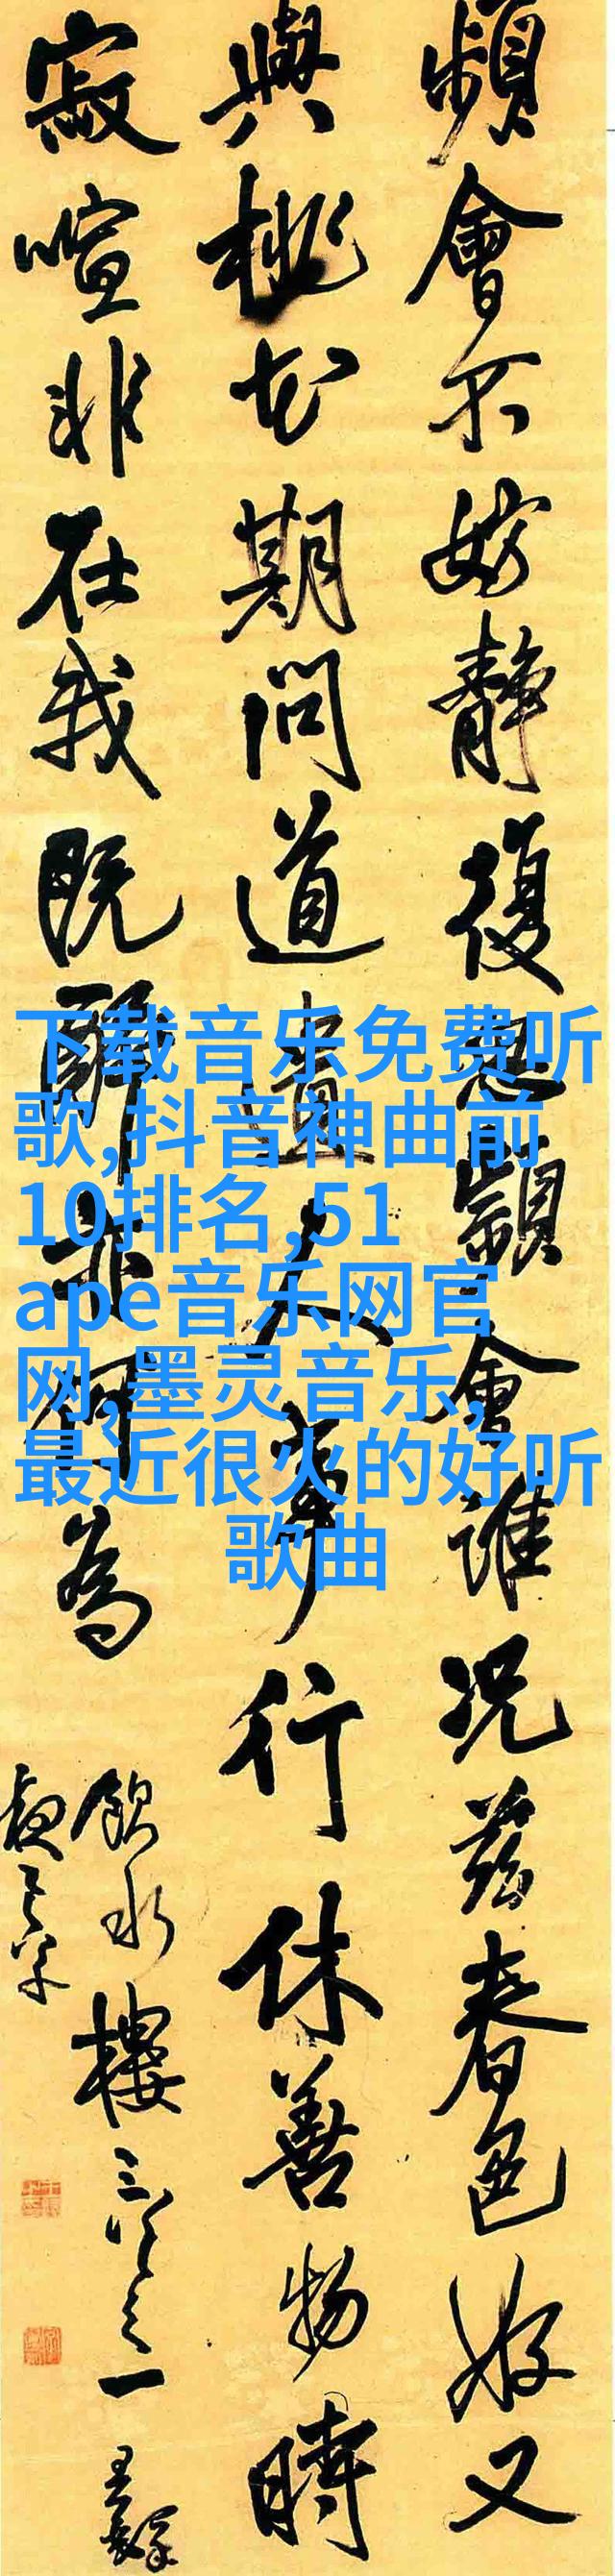 頻會不妨靜復恐會誰況茲春色好又
與桃花期問道遺人事行休善物時
寂喧非在我既醉亦何為
飲水樓三之一 王鐸
下载音乐免费听
歌,抖音神曲前
10排名,51
ape音乐网官
网,墨灵音乐,
最近很火的好听
歌曲